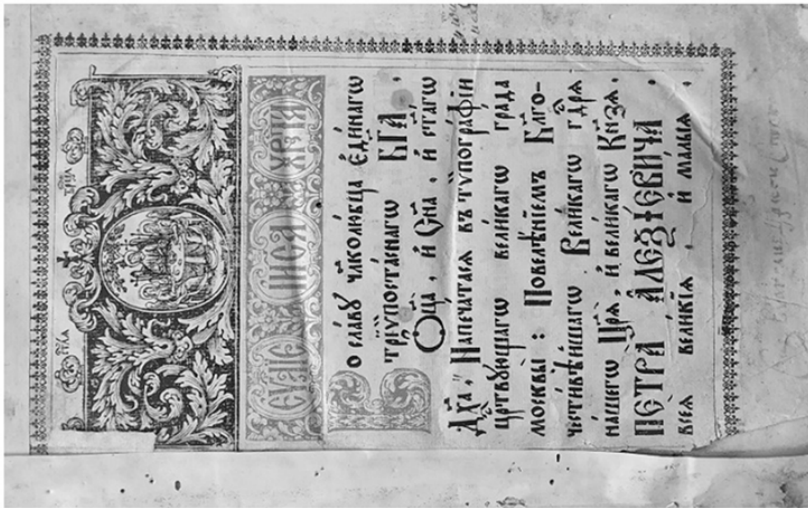 Во сла́вꙋ чл҃колю́бца є҆ди́нагѡ
трѷпоста́снагѡ БГ҃А,
Ѻц҃а̀, и҆ Сн҃а, и҆ ст҃а́гѡ
Дх҃а: Напеча́тасѧ въ тѷпогра́фїи
црⷭ҇твꙋ́ющагѡ вели́кагѡ гра́да
москвы̀: Повелѣ́нїемъ Бл҃го-
чести́вѣйшагѡ Вели́кагѡ гдⷭ҇рѧ
на́шегѡ Цр҃ѧ̀, и҆ вели́кагѡ Кн҃зѧ,
ПЕТРА̀ А҆ЛЕѮІ́ЕВИЧА,
всеѧ̀ вели́кїѧ, и҆ ма́лыѧ,